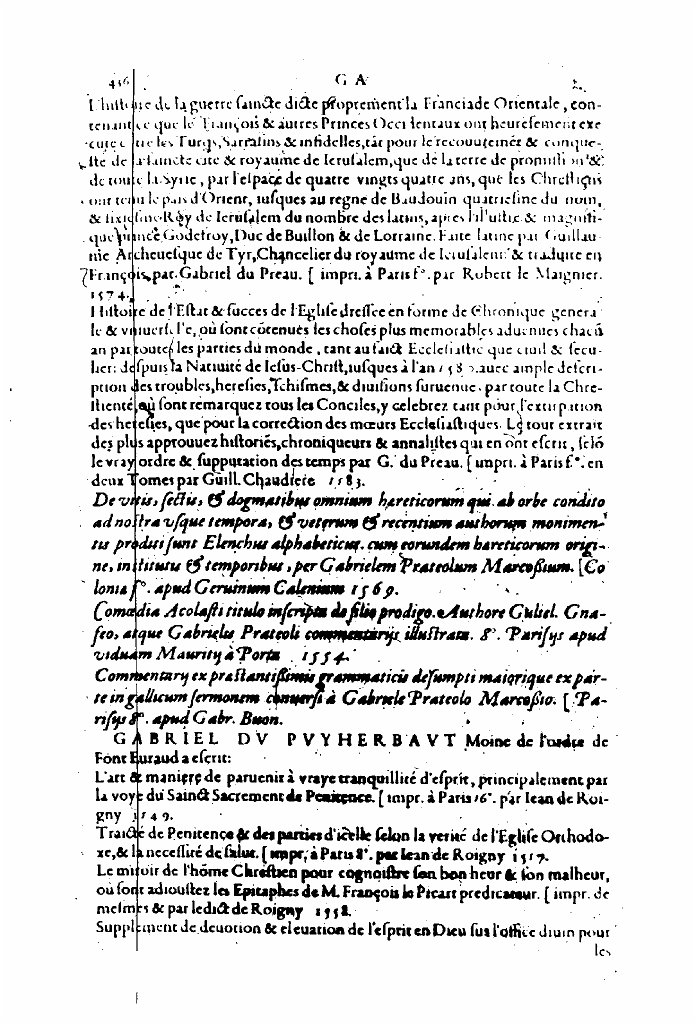 436 G A
L'histoire de la guerre saincte dicte proprement la Franciade Orientale, con-
tenant ce que le François & autres Princes Occidentaux ont heuresement exe
cuté les Turqs, Sarrasins & infidelles, tāt pour le recouuremēt & conque-
ste de la saincte cité & royaume de Ierusalem, que de la terre de promission &
de toute la Syrie, par l'espace de quatre vingts quatre ans, que les Chrestiēs
ont tenu le pais d'Orient, iusques au regne de Baudouin quatriesme du nom,
& sixiesme Roy de Ierusalem du nombre des latins, apres l'illustre & magnifi-
que prince Godefroy, Duc de Buillon & de Lorraine. Faite latine par Guillau-
me Archeuesque de Tyr, Chancelier du royaume de Ierusalem & traduite en
François, par Gabriel du Preau. [ impri. à Paris f°. par Robert le Maignier.
1574.
Histoire de l'Estat & succes de l'Eglise dressee en forme de Chronique genera
le & vniuerselle, où sont cōtenues les choses plus memorables aduenues chacū
an par toutes les parties du monde, tant au faict Ecclesiastic que ciuil & secu-
lier: despuis la Natiuité de Iesus-Christ, iusques à l'an 158 . auec ample descri-
ption des troubles, heresies, schismes, & diuisions suruenue. par toute la Chre-
stienté, où sont remarquez tous les Conciles, y celebrez tant pour l'extirpation
des heresies, que pour la correction des mœurs Ecclesiastiques. Le tout extrait
des plus approuuez historiēs, chroniqueurs & annalistes qui en ont escrit, selō
le vray ordre & supputation des temps par G. du Preau. [ impri. à Paris f°. en
deux Tomes par Guill. Chaudiere 1583.
De vitis, sectis, & dogmatibus omnium hæreticorum qui. ab orbe condito
ad nostra vsque tempora, & veterum & recentium authorum monimen-
tis proditi sunt Elenchus alphabeticus. cum eorundem hæreticorum origi-
ne, institutu & temporibus, per Gabrielem Prateolum Marcoßium. [Co
lonia f°. apud Geruinum Calenium 1569.
Comœdia Acolasti titulo inscripta de filio prodigo. Authore Guliel. Gna-
feo, atque Gabrielis Prateoli commentarijs illustrata. 8°. Parisys apud
viduam Mauritij à Porta 1554.
Commentary ex præstantißimis grammaticis desumpti maiorique ex par-
te in gallicum sermonem conuersi à Gabriele Prateolo Marcoßio. [ Pa-
risys 8°. apud Gabr. Buon.
GABRIEL DV PVYHERBAVT Moine de l'ordre de
Font Euraud a escrit:
L'art & maniere de paruenir à vraye tranquillité d'esprit, principalement par
la voye du Sainct Sacrement de Penitence. [ impr. à Paris 16°. par Iean de Roi-
gny 1549.
Traicté de Penitence & des parties d'icelle selon la verité de l'Eglise Orthodo-
xe, & la necessité de salut. [ impr, à Paris 8°. par Iean de Roigny 1557.
Le miroir de l'hōme Chrestien pour cognoistre son bon heur & son malheur,
où sont adioustez les Epitaphes de M. François le Picart predicateur. [ impr. de
mesmes & par ledict de Roigny 1558.
Supplement de deuotion & eleuation de l'esprit en Dieu sus l'office diuin pour
les